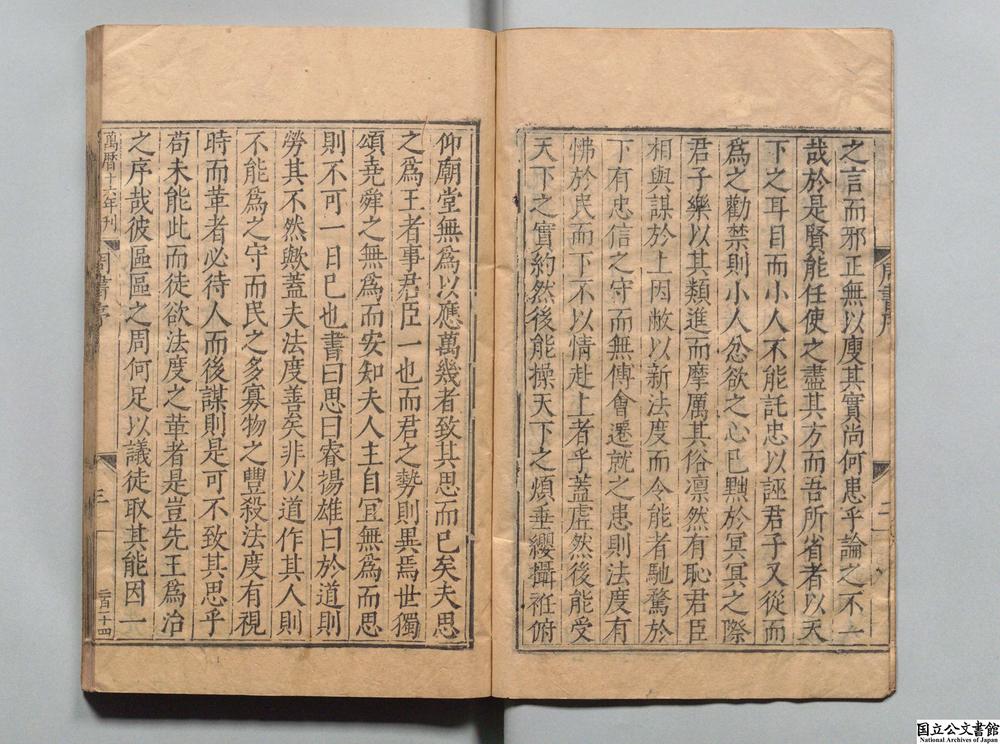 之言而邪正無以廋其實尚何患乎論之不一
哉於是賢能任使之盡其方而吾所省者以天
下之耳目而小人不能託忠以誣君子又從而
爲之勸禁則小人忿欲之心已黜於冥冥之際
君子樂以其類進而摩厲其俗凛然有恥君臣
相與謀於上因敝以新法度而令能者馳騖於
下有忠信之守而無傅會遷就之患則法度有
怫於民而下不以情赴上者乎蓋虛然後能受
天下之實約然後能操天下之煩垂纓攝袵俯
周書序
三
仰廟堂無爲以應萬幾者致其思而已矣夫思
之爲王者事君臣一也而君之勢則異焉世獨
頌堯舜之無爲而安知夫人主自冝無爲而思
則不可一日已也書曰思曰睿揚雄曰於道則
勞其不然歟蓋夫法度善矣非以道作其人則
不能爲之守而民之多寡物之豐殺法度有視
時而革者必待人而後謀則是可不致其思乎
苟未能此而徒欲法度之革者是豈先王爲治
之序哉彼區區之周何足以議徒取其能因一
萬曆十六年刊
周書序
三
二百二十四
国立公文書館
National Archives of Japan